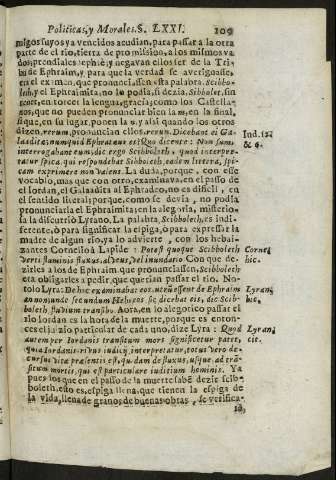 Politicas, y Morales. §. LXXI. 109
migos suyos ya vencidos acudian, para passar a la otra
parte de el rio, tierra de promission, a los mismos va
dos; prendiales Iephte, y negavan ellos ser de la Tri
bu de Ephraim, y para que la verdad se averiguasse,
era el examen, que pronunciassen esta palabra, Scibbo-
leth, y el Ephratayta, no lo podia, si dezia, Sibbolet, sin
torcer la lengua, gracia, como los Castella-
nos, que no pueden pronunciar bien la m, en la final,
sique, en su lugar ponen la n, y assi quando los otros
dizen, rerum, pronuncian ellos, rerun. Dicebant ei Ga-
laaditæ; numquid Ephratæus es? Quo dicente: Non sum. Iud. 12.
interrogabant eum, dic ergo Scibboleth: quod interpre- & 6.
tatur spica. qui respondebat Sibboleth, eadem litera, spi-
cam exprimere non valens. La duda, porque, con esse
vocablo, mas que con otro, examinava, en el passo de
el Iordan, el Galaadita al Ephradeo, no es dificil, en
el sentido literal; porque, como se devia, no podia
pronunciarla el Ephraimita; en la alegoria, misterio
sa la discurriò Lyrano. La palabra, Scibboleth, es indi-
ferente, ò para significar la espiga, ò para expressar la
madre de algun rio, ya lo advierte, con los hebrai-
zantes Cornelio à Lapide: Potest quoque Scibboleth Cornel
verti fluminis fluxus, alveus, vel inundatio. Con que de- hic.
zirles a los de Ephraim que pronunciassen, Scibboleth
era obligarles a pedir, que querian passar el rio. No-
tolo Lyra: Debent examinabat eos. utrum essent de Ephraim Lyran.
an non, unde secundum Hebræos sic dicebat eis, dic Scib- hic.
boleth, fluvium transibo. Aora, en lo alegorico passar el
rio Iordan es la hora de la muerte, porque es enton-
ces el juzio particular de cada uno, dize Lyra: Quod Lyran.
autem per Iordanis transitum mors significetur patet, hic.
quia Iordanis rivus iudicij, interpretatur, totus verò de-
cursus vitæ præsentis est, quidam defluxus, usque ad trã-
situm mortis, qui est particulare iudicium hominis. Ya
pues los que en el passo de la muerte sabẽ dezir scib-
boleth, esto es, espiga llena, que tienen la espiga de
la vida, llena de granos de buenas obras, se verifica-